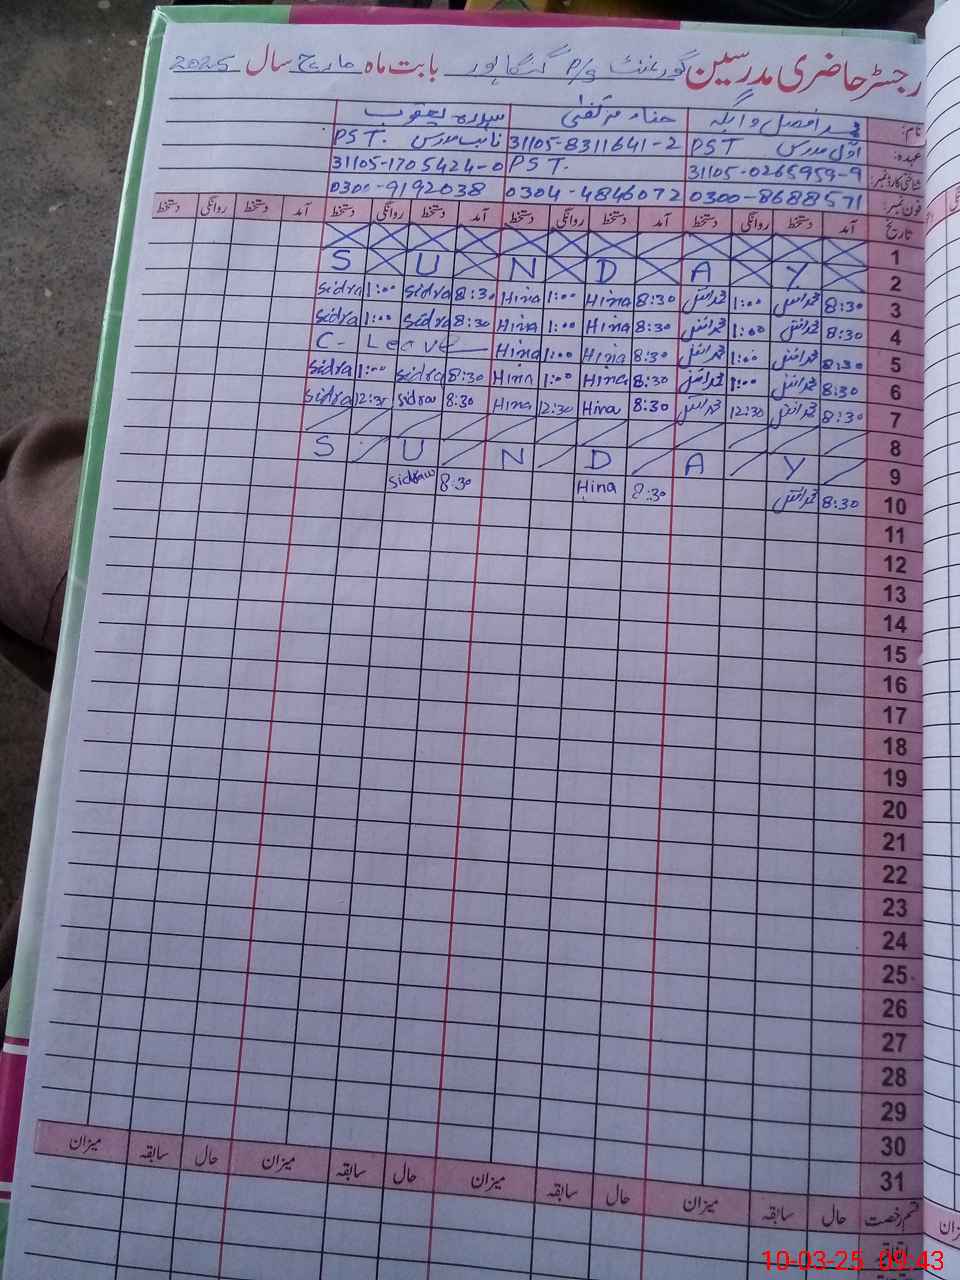 رجسٹر حاضری مدرسین گورنمنٹ P/S گنگاپور بابت ماہ مارچ سال 2025
نام: محمد افضل واہلہ حناء مرتضیٰ سدرہ یعقوب
عہدہ: اوّل مدرس PST 31105-8311641-2 نائب مدرس PST.
شناختی کارڈ نمبر: 31105-0265959-9 PST. 31105-1705424-0
فون نمبر: 0300-8688571 0304-4846072 0300-9192038
تاریخ آمد دستخط روانگی دستخط آمد دستخط روانگی دستخط آمد دستخط روانگی دستخط آمد دستخط روانگی دستخط
1
2 S U N D A Y
3 8:30 1:00 8:30 Hina 1:00 Hina 8:30 Sidra 1:00 Sidra
4 8:30 1:00 8:30 Hina 1:00 Hina 8:30 Sidra 1:00 Sidra
5 8:30 1:00 8:30 Hina 1:00 Hina C- Leave
6 8:30 1:00 8:30 Hina 1:00 Hina 8:30 Sidra 1:00 Sidra
7 8:30 12:30 8:30 Hina 12:30 Hina 8:30 Sidra 12:30 Sidra
8
9 S U N D A Y
10 8:30 8:30 Hina 8:30 Sidra
11
12
13
14
15
16
17
18
19
20
21
22
23
24
25
26
27
28
29
30
31
قسم رخصت حال سابقہ میزان حال سابقہ میزان حال سابقہ میزان حال سابقہ میزان
10-03-25 09:43